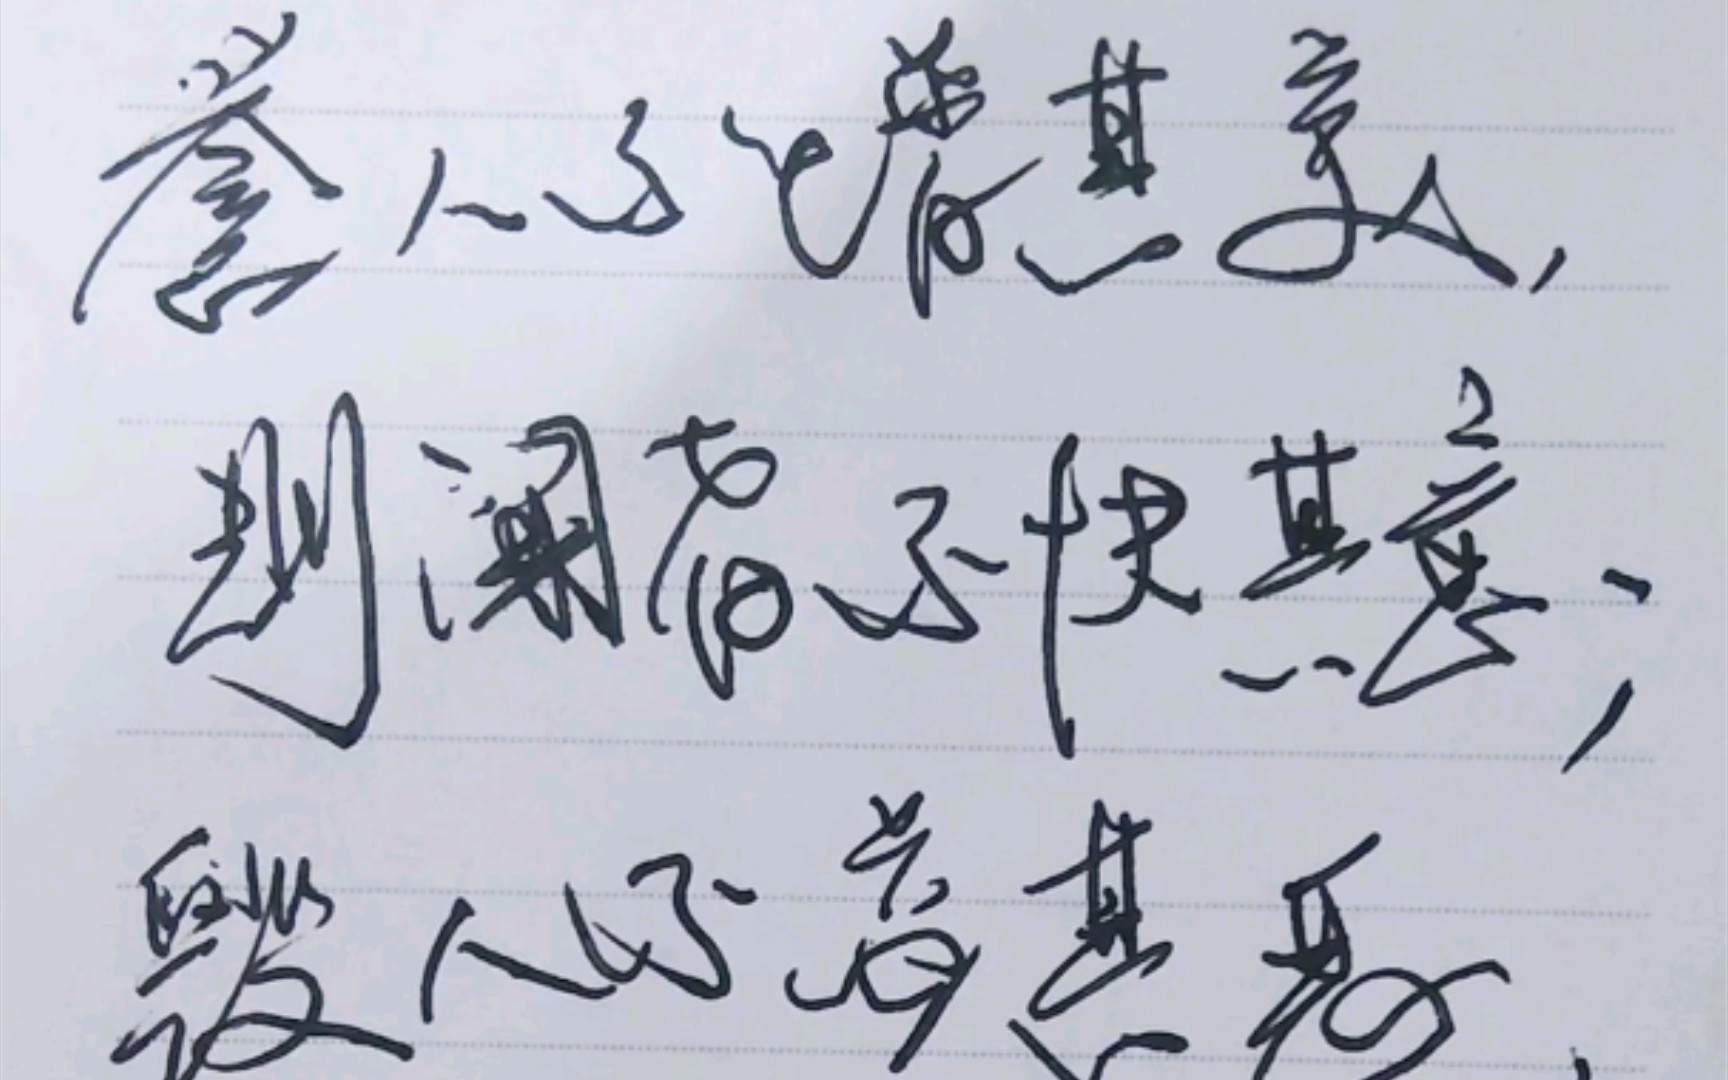 誉人不增其美,
则闻者不快其意;
毁人不益其恶,